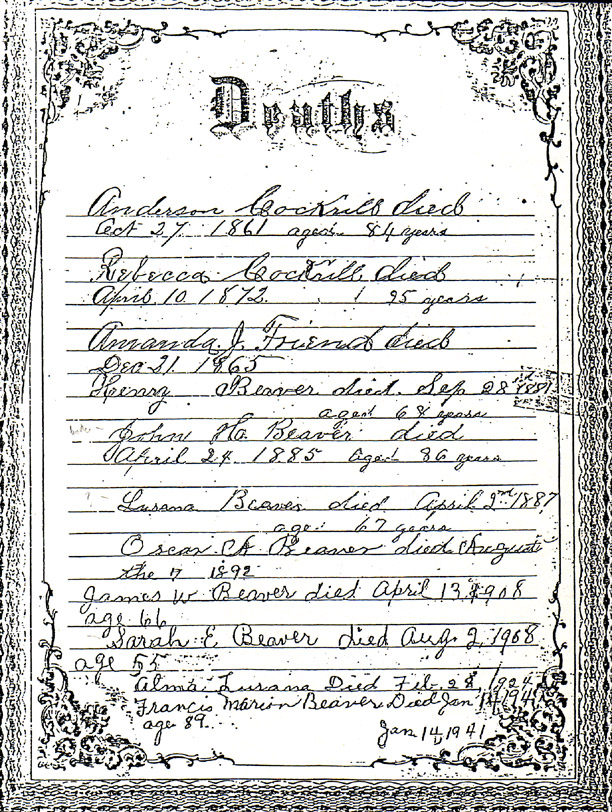 Deaths
Anderson Cockrill died
Oct 27 1861 aged 84 years
Rebecca Cockrill died
April 10 1872 95 years
Amanda J. Friend died
Dec 21 1865
Henry Beaver died Sep 28
aged 68 years
John H. Beaver died
April 24 1885 aged 86 years
Lusana Beaver died April 2nd 1887
aged 67 years
Oscar A Beaver died August
the 7 1892
James W Beaver died April 13 1908
age 66
Sarah E, Beaver died Aug. 2, 1908
age 55
Alma Lusana Died Feb. 28, 1924
Francis Marion Beaver Died Jan 14, 1941
age 89.
Jan. 14, 1941